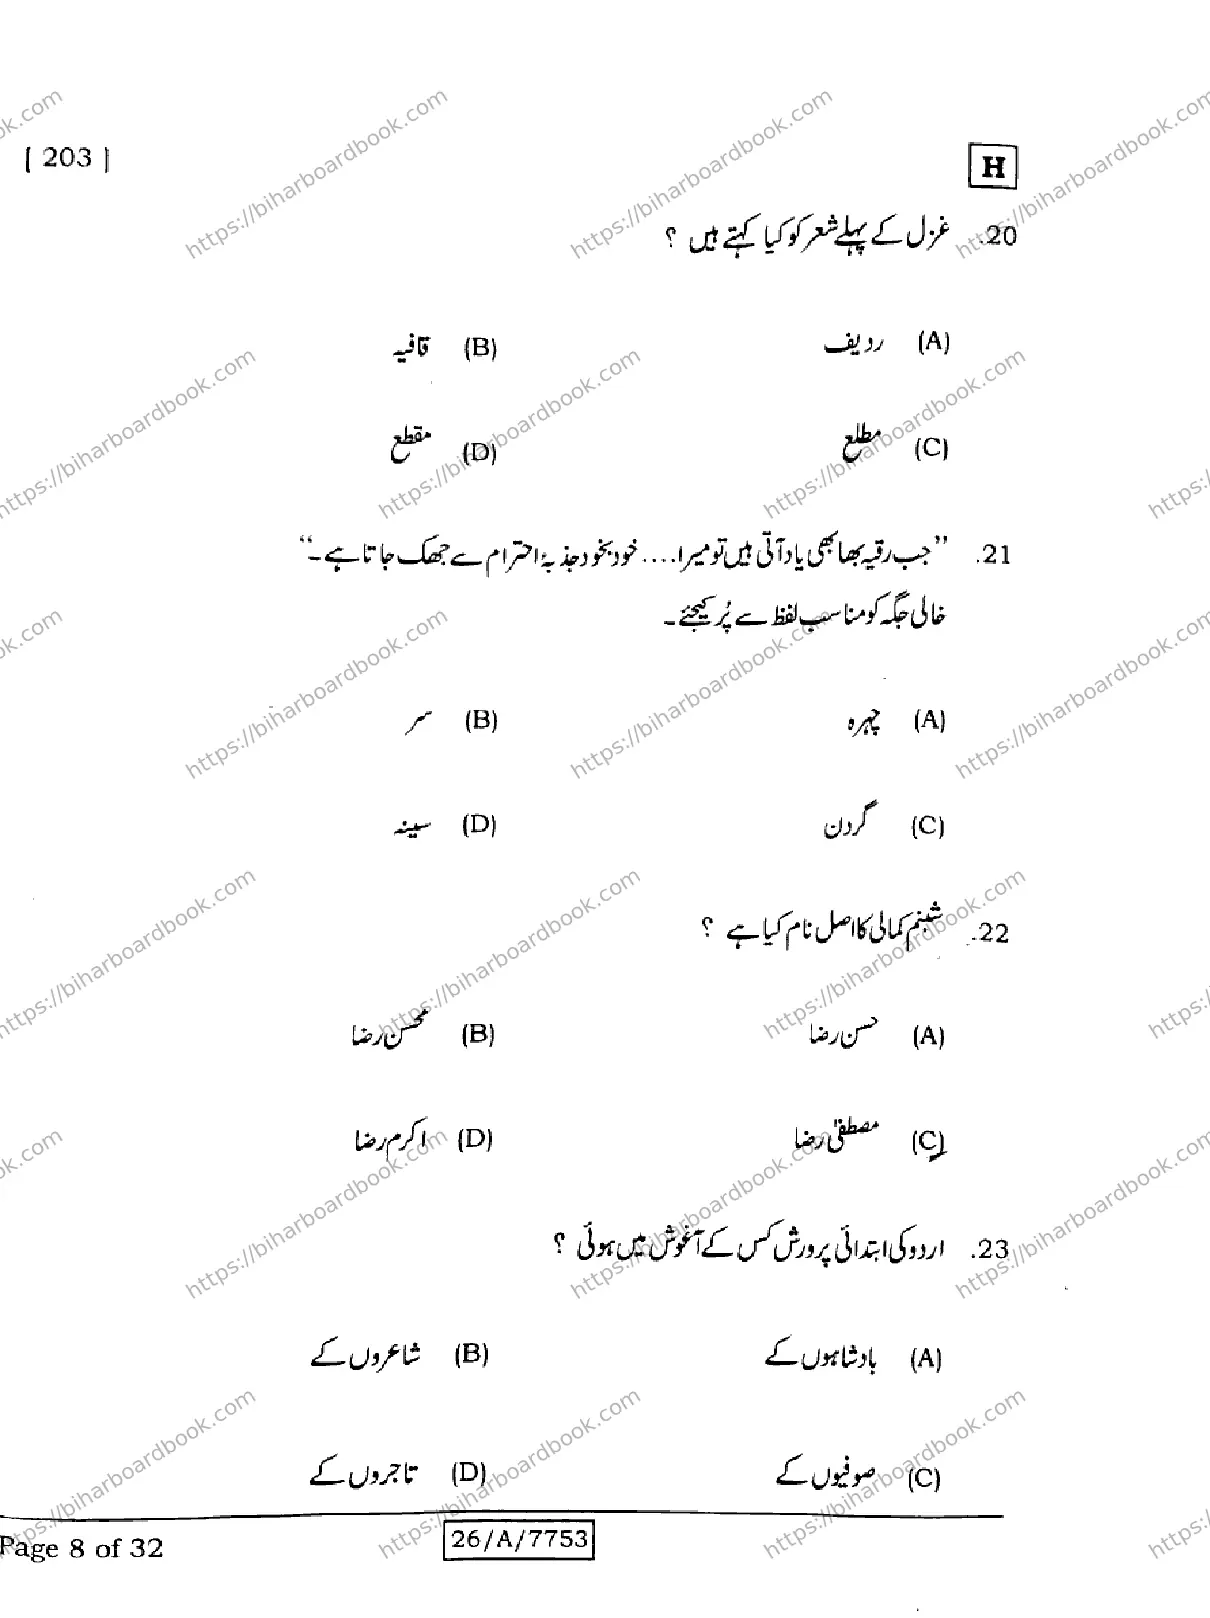 [ 203 ]
H
20. غزل کے پہلے شعر کو کیا کہتے ہیں ؟
(A) ردیف (B) قافیہ
(C) مطلع (D) مقطع
21. ”جب رقیہ بھابھی یاد آتی ہیں تو میرا .... خود بخود جذبۂ احترام سے جھک جاتا ہے۔“
خالی جگہ کو مناسب لفظ سے پُر کیجئے۔
(A) چہرہ (B) سر
(C) گردن (D) سینہ
22. شبنم کمالی کا اصل نام کیا ہے ؟
(A) حسن رضا (B) محسن رضا
(C) مصطفیٰ رضا (D) اکرم رضا
23. اردو کی ابتدائی پرورش کس کے آغوش میں ہوئی ؟
(A) بادشاہوں کے (B) شاعروں کے
(C) صوفیوں کے (D) تاجروں کے
Page 8 of 32
26/A/7753
https://biharboardbook.com